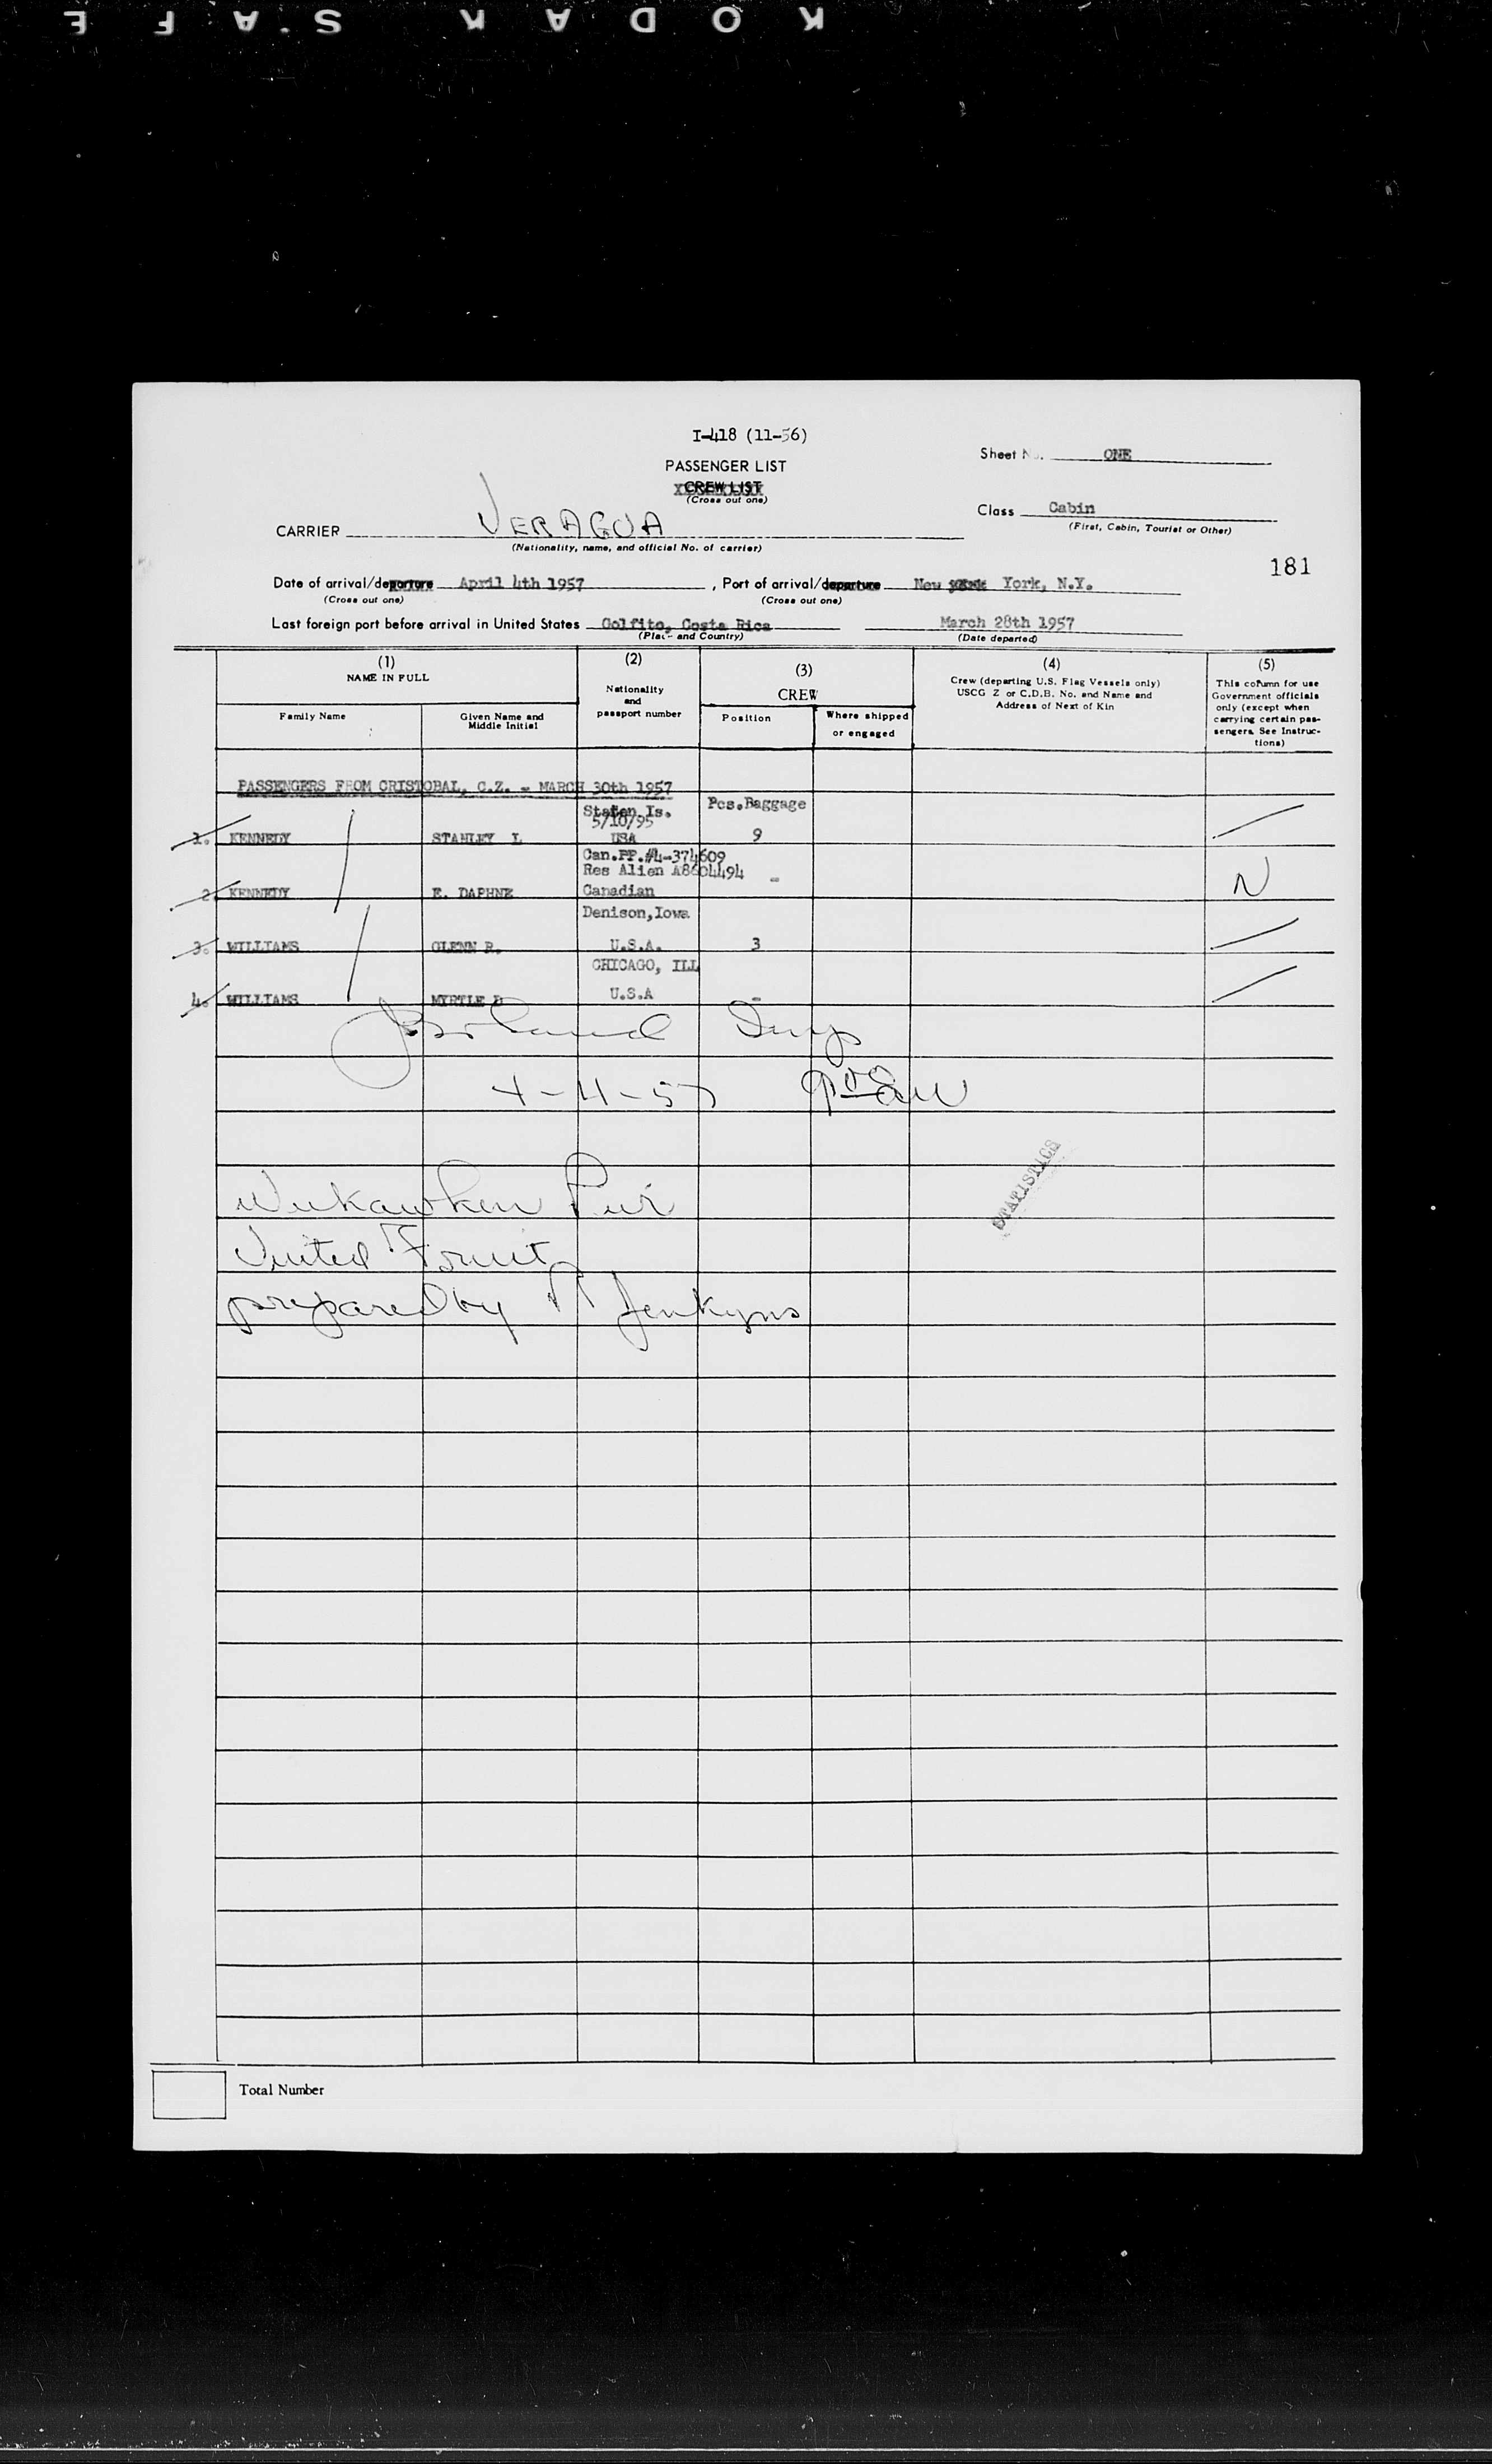 KODAK SAFE
I-418 (11-56)
Sheet No. ONE
PASSENGER LIST
CREW LIST
(Cross out one)
Class Cabin
(First, Cabin, Tourist or Other)
CARRIER VERAGUA
(Nationality, name, and official No. of carrier)
181
Date of arrival/departure April 4th 1957, Port of arrival/departure New York, N.Y.
(Cross out one) (Cross out one)
Last foreign port before arrival in United States Golfito, Costa Rica March 28th 1957
(Place and Country) (Date departed)
(1) (2) (3) (4) (5)
NAME IN FULL
Nationality and passport number
CREW
Crew (departing U.S. Flag Vessels only) USCG Z or C.D.B. No. and Name and Address of Next of Kin
This column for use Government officials only (except when carrying certain passengers. See Instructions)
Family Name
Given Name and Middle Initial
Position
Where shipped or engaged
PASSENGERS FROM CRISTOBAL, C.Z. - MARCH 30th 1957
Staten Is. Pcs.Baggage
5/10/95
1. KENNEDY STANLEY L USA 9
Can.PP.#4-374609
Res Alien A8604494 -
2. KENNEDY E. DAPHNE Canadian N
Denison,Iowa
3. WILLIAMS GLENN R. U.S.A. 3
CHICAGO, ILL
4. WILLIAMS MYRTLE D U.S.A -
Insp
4-4-57 9 00 AM
STATISTICS
Weehawken Pier
United Fruit
prepared by Jenkyns
Total Number